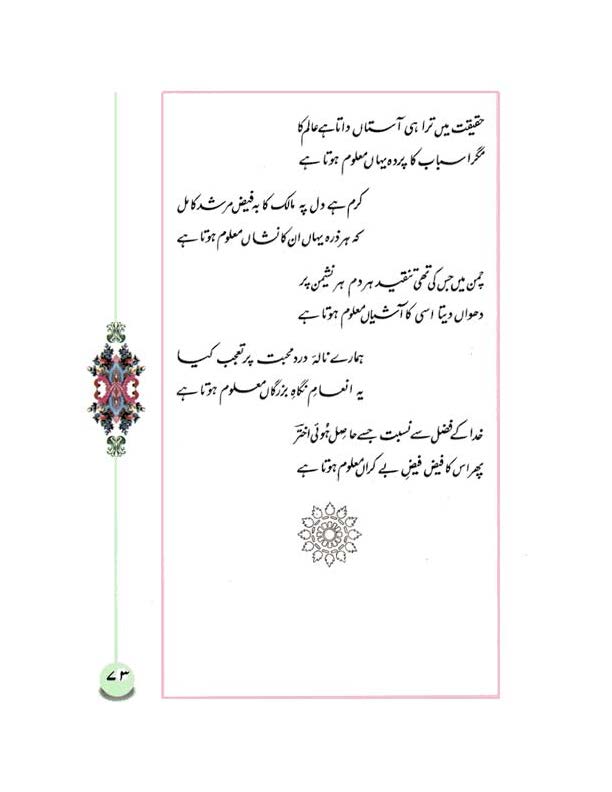 حقیقت میں ترا ہی آستاں داتا ہے عالم کا
مگر اسباب کا پردہ یہاں معلوم ہوتا ہے
کرم ہے دل پہ مالک کا بہ فیض مرشد کامل
کہ ہر ذرہ یہاں ان کا نشاں معلوم ہوتا ہے
چمن میں جس کی تھی تنقید ہر دم ہر نشیمن پر
دھواں دیتا اسی کا آشیاں معلوم ہوتا ہے
ہمارے نالۂ درد محبت پر تعجب کیا
یہ انعامِ نگاہِ بزرگاں معلوم ہوتا ہے
خدا کے فضل سے نسبت جسے حاصل ہُوئی اخترؔ
پھر اس کا فیض فیضِ بے کراں معلوم ہوتا ہے
۷۳